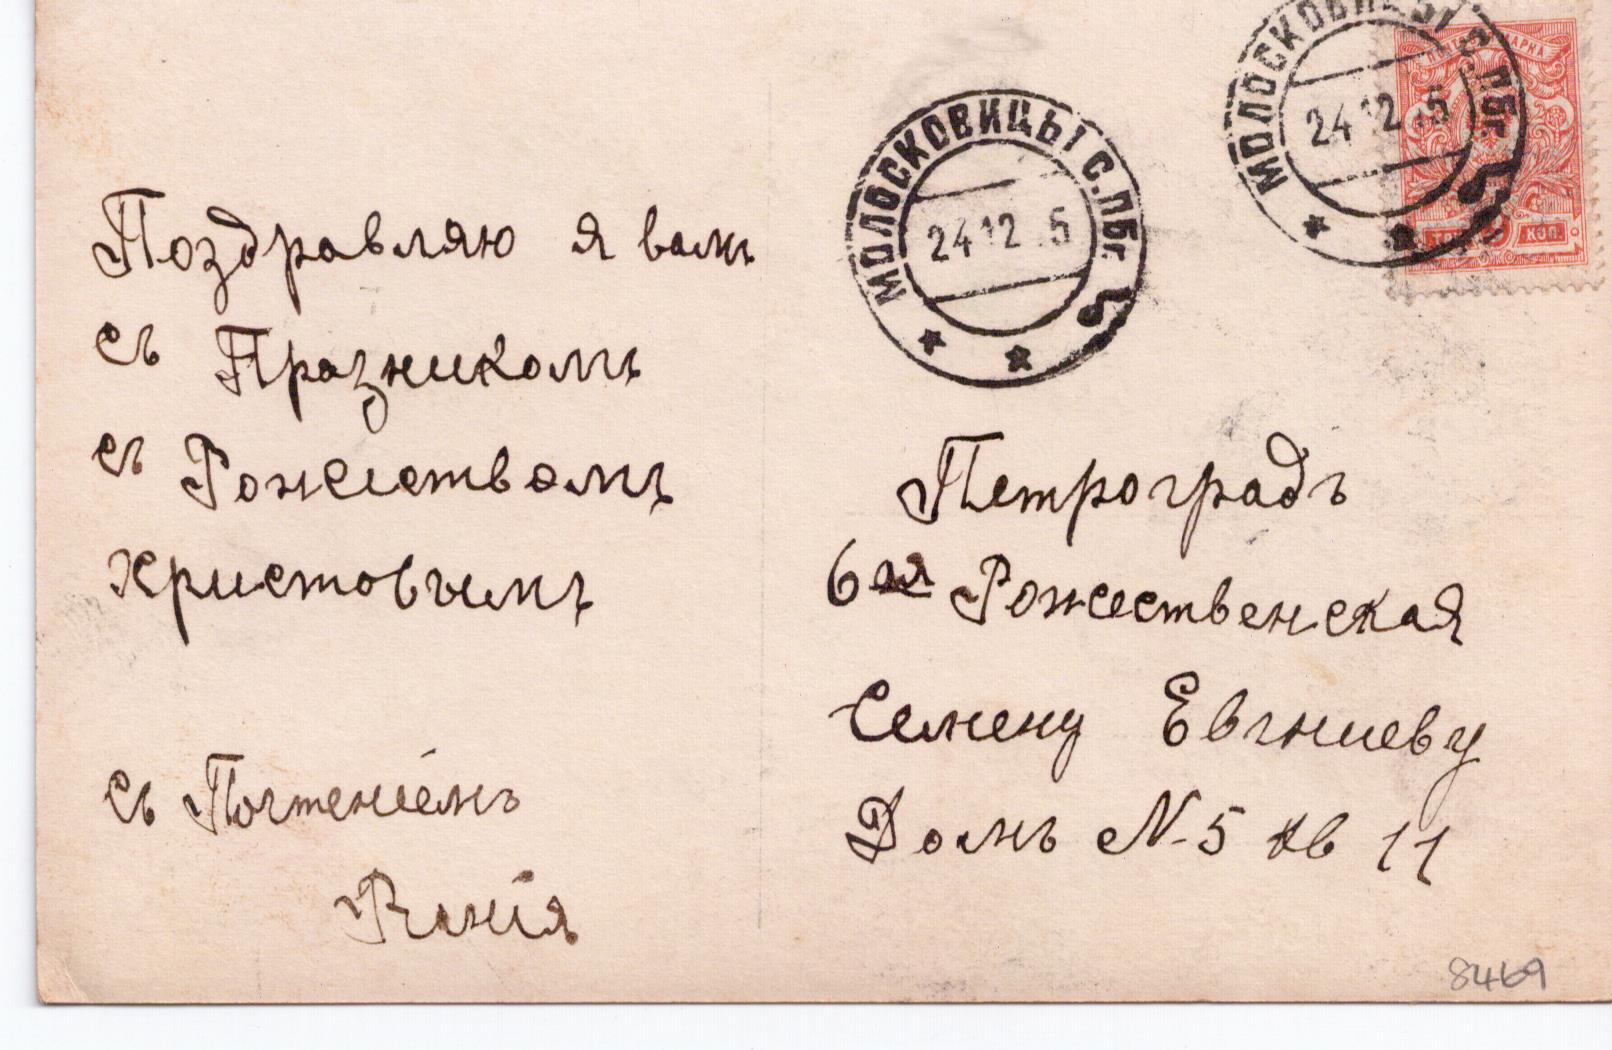 МОЛОСКОВИЦЫ С.ПБГ.
24 12 15
ТРИ КОП.
МОЛОСКОВИЦЫ С.ПБГ.
24 12 15
Поздравляю я вамъ
съ Празникомъ
съ Рожествомъ
Христовымъ
съ Почтеніемъ
Петроградъ
6ая Рожественская
Семену Евгниеву
Домъ №5 кв 11
8469